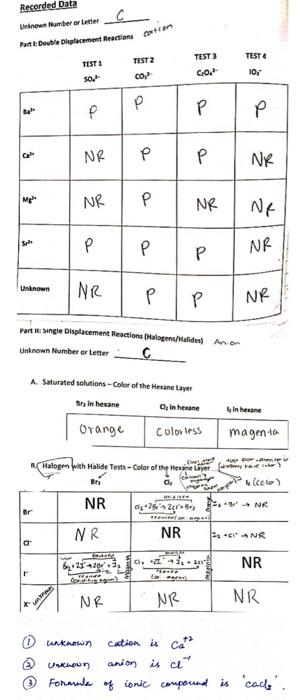 Recorded Data
Unknown Number or Letter C
Part I: Double Displacement Reactions cation
TEST 1 TEST 2 TEST 3 TEST 4
SO₄²⁻ CO₃²⁻ C₂O₄²⁻ IO₃⁻
Ba²⁺ P P P P
Ca²⁺ NR P P NR
Mg²⁺ NR P NR NR
Sr²⁺ P P P NR
Unknown NR P P NR
Part II: Single Displacement Reactions (Halogens/Halides) Anion
Unknown Number or Letter C
A. Saturated solutions – Color of the Hexane Layer
Br₂ in hexane Cl₂ in hexane I₂ in hexane
Orange Colorless magenta
B. Halogen with Halide Tests – Color of the Hexane Layer
Br₂ Cl₂ I₂ (color)
Br⁻ NR Cl₂ + 2Br⁻ → 2Cl⁻ + Br₂ I₂ + Br⁻ → NR
Cl⁻ NR NR I₂ + Cl⁻ → NR
I⁻ Br₂ + 2I⁻ → 2Br⁻ + I₂ Cl₂ + 2I⁻ → I₂ + 2Cl⁻ NR
X⁻ unknown NR NR NR
① unknown cation is Ca⁺²
② unknown anion is Cl⁻
③ Formula of ionic compound is 'CaCl₂'.